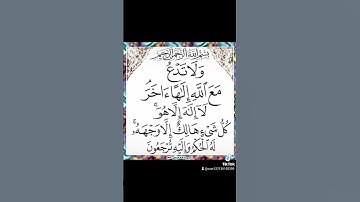 بسم الله الرحمن الرحيم
وَلَا تَدْعُ
مَعَ ٱللَّهِ إِلَٰهًا ءَاخَرَ ۘ
لَا إِلَٰهَ إِلَّا هُوَ ۚ
كُلُّ شَىْءٍ هَالِكٌ إِلَّا وَجْهَهُۥ ۚ
لَهُ ٱلْحُكْمُ وَإِلَيْهِ تُرْجَعُونَ
TikTok